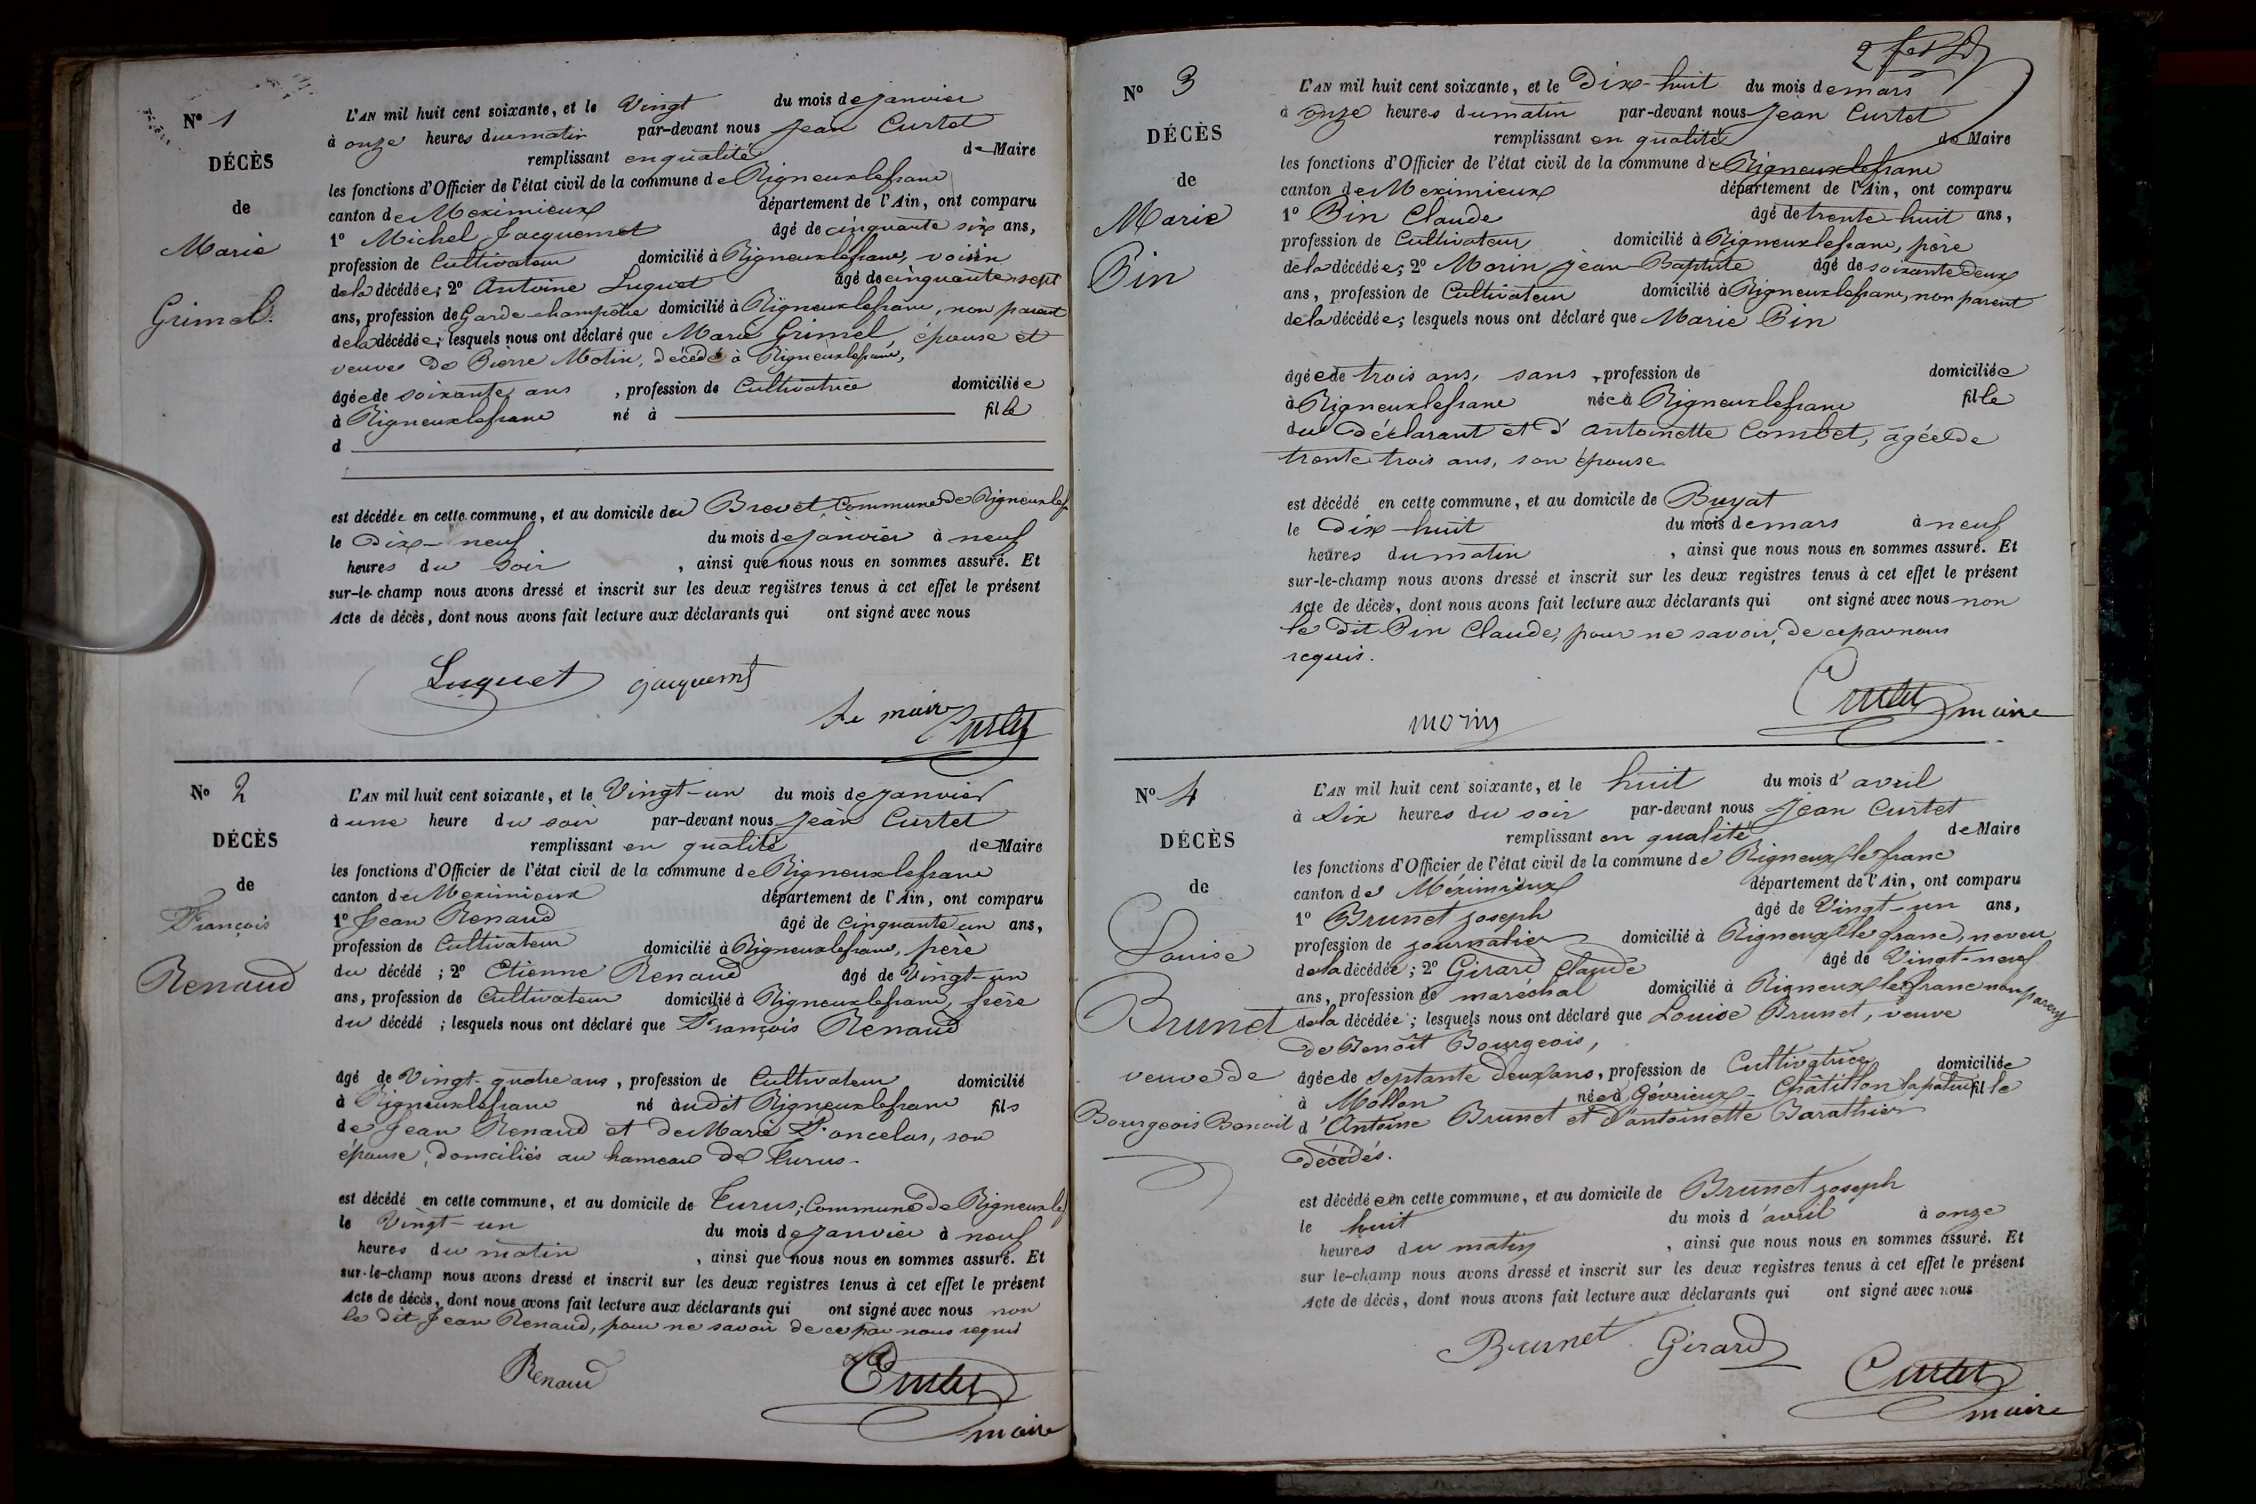 N° 1
DÉCÈS
de
Marie
Grimel.
L'AN mil huit cent soixante, et le Vingt du mois de janvier
à onze heures du matin par-devant nous Jean Curtet
remplissant en qualité de Maire
les fonctions d'Officier de l'état civil de la commune de Rigneuxlefranc
canton de Meximieux département de l'Ain, ont comparu
1° Michel Jacquemet âgé de cinquante six ans,
profession de Cultivateur domicilié à Rigneuxlefranc, voisin
de la décédée; 2° Antoine Luquet âgé de cinquante sept
ans, profession de Garde champêtre domicilié à Rigneuxlefranc, non parent
de la décédée; lesquels nous ont déclaré que Marie Grimel, épouse et
veuve de Pierre Motin, décédé à Rigneuxlefranc,
âgée de soixante ans, profession de Cultivatrice domiciliée
à Rigneuxlefranc né à fille
d
est décédée en cette commune, et au domicile du Brevet, Commune de Rigneuxlef
le Dix-neuf du mois de janvier à neuf
heures du soir, ainsi que nous nous en sommes assuré. Et
sur-le-champ nous avons dressé et inscrit sur les deux registres tenus à cet effet le présent
Acte de décès, dont nous avons fait lecture aux déclarants qui ont signé avec nous
Luquet Jacquemet
Le maire Curtet
N° 2
DÉCÈS
de
François
Renaud
L'AN mil huit cent soixante, et le Vingt-un du mois de janvier
à une heure du soir par-devant nous Jean Curtet
remplissant en qualité de Maire
les fonctions d'Officier de l'état civil de la commune de Rigneuxlefranc
canton de Meximieux département de l'Ain, ont comparu
1° Jean Renaud âgé de cinquante un ans,
profession de Cultivateur domicilié à Rigneuxlefranc, père
du décédé; 2° Etienne Renaud âgé de Vingt-un
ans, profession de Cultivateur domicilié à Rigneuxlefranc, frère
du décédé; lesquels nous ont déclaré que François Renaud
âgé de Vingt-quatre ans, profession de Cultivateur domicilié
à Rigneuxlefranc né audit Rigneuxlefranc fils
de Jean Renaud et de Marie Poncelas, son
épouse, domiciliés au hameau de Turus.
est décédé en cette commune, et au domicile de Turus, Commune de Rigneuxlef
le Vingt-un du mois de janvier à neuf
heures du matin, ainsi que nous nous en sommes assuré. Et
sur-le-champ nous avons dressé et inscrit sur les deux registres tenus à cet effet le présent
Acte de décès, dont nous avons fait lecture aux déclarants qui ont signé avec nous non
le dit Jean Renaud, pour ne savoir de ce par nous requis
Renaud
Curtet
maire
N° 3
DÉCÈS
de
Marie
Bin
L'AN mil huit cent soixante, et le Dix-huit du mois de mars
à onze heures du matin par-devant nous Jean Curtet
remplissant en qualité de Maire
les fonctions d'Officier de l'état civil de la commune de Rigneuxlefranc
canton de Meximieux département de l'Ain, ont comparu
1° Bin Claude âgé de trente-huit ans,
profession de Cultivateur domicilié à Rigneuxlefranc, père
de la décédée; 2° Morin Jean-Baptiste âgé de soixante deux
ans, profession de Cultivateur domicilié à Rigneuxlefranc, non parent
de la décédée; lesquels nous ont déclaré que Marie Bin
âgée de trois ans, sans, profession de domiciliée
à Rigneuxlefranc née à Rigneuxlefranc fille
du Déclarant et d'antoinette Combet, âgée de
trente trois ans, son épouse
est décédé en cette commune, et au domicile de Buyat
le Dix-huit du mois de mars à neuf
heures du matin, ainsi que nous nous en sommes assuré. Et
sur-le-champ nous avons dressé et inscrit sur les deux registres tenus à cet effet le présent
Acte de décès, dont nous avons fait lecture aux déclarants qui ont signé avec nous non
le dit Bin Claude, pour ne savoir, de ce par nous
requis.
morin
Curtet maire
N° 4
DÉCÈS
de
Louise
Brunet
veuve de
Bourgeois Benoit
L'AN mil huit cent soixante, et le huit du mois d'avril
à Six heures du soir par-devant nous Jean Curtet
remplissant en qualité de Maire
les fonctions d'Officier de l'état civil de la commune de Rigneux le franc
canton de Méximieux département de l'Ain, ont comparu
1° Brunet Joseph âgé de Vingt-un ans,
profession de journalier domicilié à Rigneux le franc, neveu
de la décédée; 2° Girard Claude âgé de Vingt-neuf
ans, profession de maréchal domicilié à Rigneux le franc non parent
de la décédée; lesquels nous ont déclaré que Louise Brunet, veuve
de Benoît Bourgeois,
âgée de septante deux ans, profession de Cultivatrice domiciliée
à Mollon née à Gévrieux-Châtillon lapalud fille
d'Antoine Brunet et d'antoinette Barathier
décédés.
est décédée en cette commune, et au domicile de Brunet Joseph
le huit du mois d'avril à onze
heures du matin, ainsi que nous nous en sommes assuré. Et
sur le-champ nous avons dressé et inscrit sur les deux registres tenus à cet effet le présent
Acte de décès, dont nous avons fait lecture aux déclarants qui ont signé avec nous
Brunet Girard
Curtet
maire